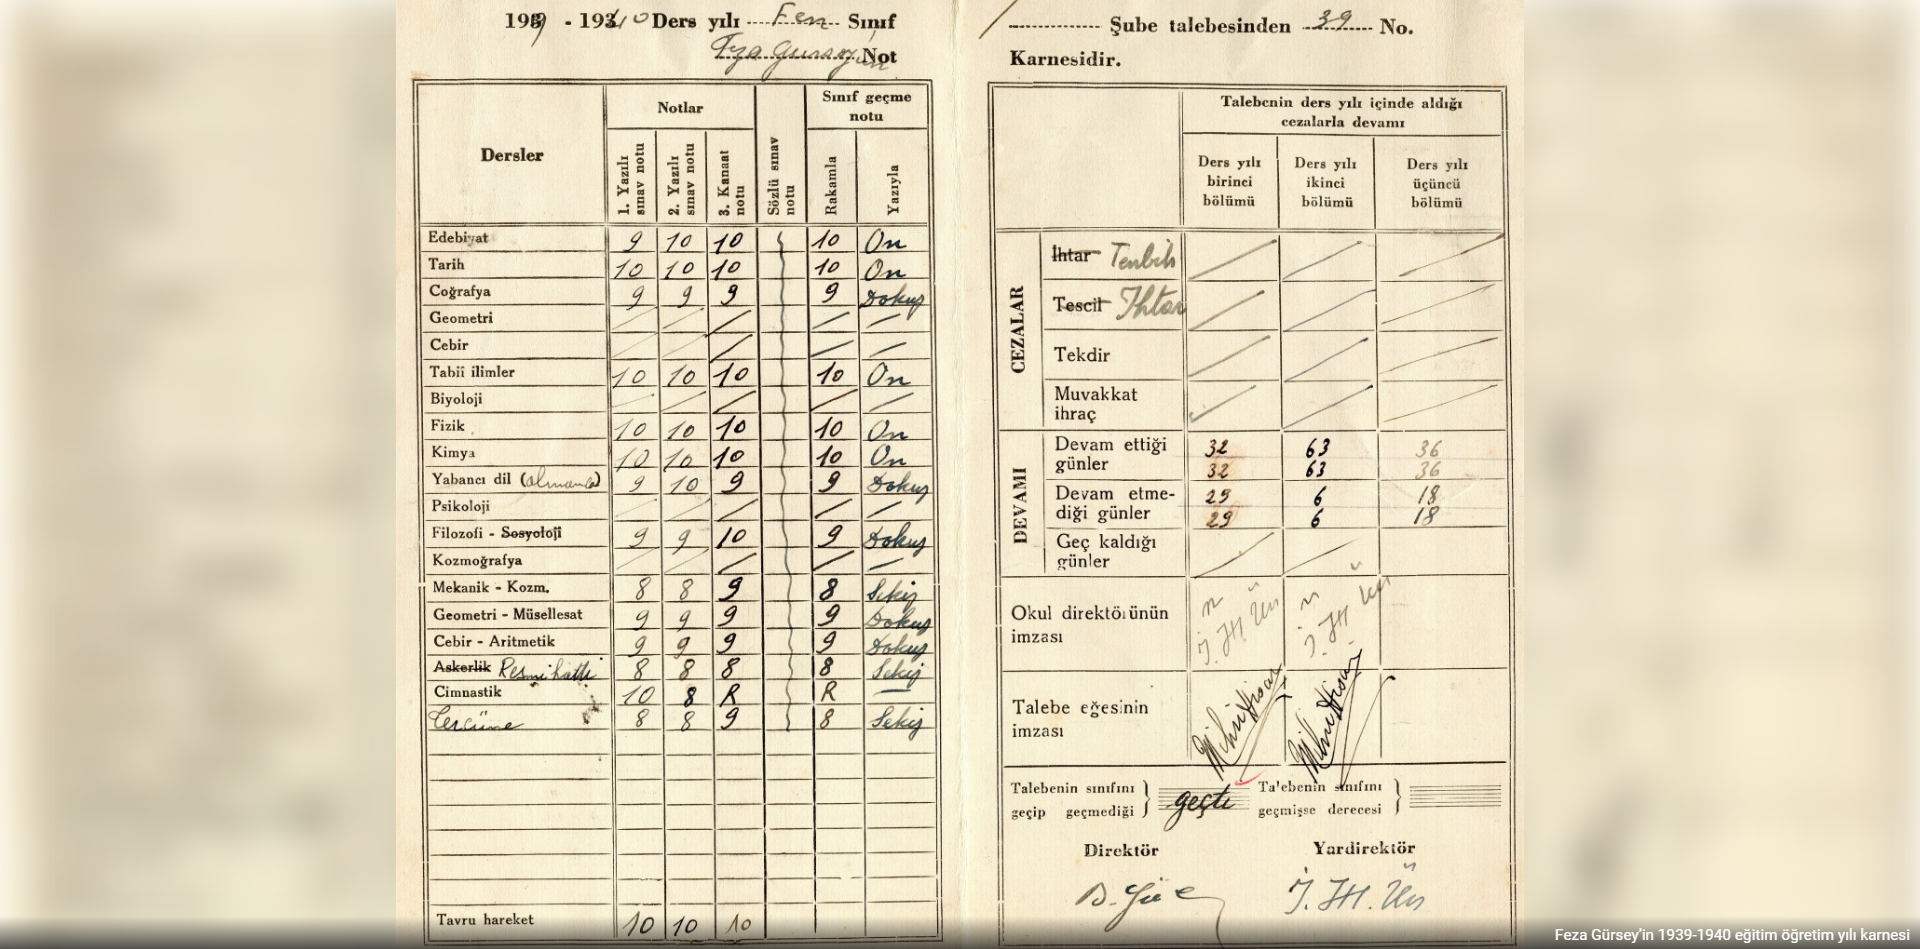 1939 - 1940 Ders yılı Fen Sınıf
Feza Gürsey'in Not
Şube talebesinden 39 No.
Karnesidir.
Dersler
Notlar
Sınıf geçme notu
1. Yazılı sınav notu
2. Yazılı sınav notu
3. Kanaat notu
Sözlü sınav notu
Rakamla
Yazıyla
Edebiyat 9 10 10 10 On
Tarih 10 10 10 10 On
Coğrafya 9 9 9 9 Dokuz
Geometri
Cebir
Tabiî ilimler 10 10 10 10 On
Biyoloji
Fizik 10 10 10 10 On
Kimya 10 10 10 10 On
Yabancı dil (almanca) 9 10 9 9 Dokuz
Psikoloji
Filozofi - Sosyoloji 9 9 10 9 Dokuz
Kozmoğrafya
Mekanik - Kozm. 8 8 9 8 Sekiz
Geometri - Müsellesat 9 9 9 9 Dokuz
Cebir - Aritmetik 9 9 9 9 Dokuz
Askerlik Resmi hattî 8 8 8 8 Sekiz
Cimnastik 10 8 R R
Tercüme 8 8 9 8 Sekiz
Tavru hareket 10 10 10
Talebenin ders yılı içinde aldığı
cezalarla devamı
Ders yılı birinci bölümü
Ders yılı ikinci bölümü
Ders yılı üçüncü bölümü
CEZALAR
İhtar Tenbih
Tescil İhtar
Tekdir
Muvakkat ihraç
DEVAMI
Devam ettiği 32 63 36
günler 32 63 36
Devam etme- 29 6 18
diği günler 29 6 18
Geç kaldığı
günler
Okul direktörünün
imzası
Talebe eğesinin
imzası
Talebenin sınıfını
geçip geçmediği
geçti
Talebenin sınıfını
geçmişse derecesi
Direktör
Yardirektör
Feza Gürsey'in 1939-1940 eğitim öğretim yılı karnesi